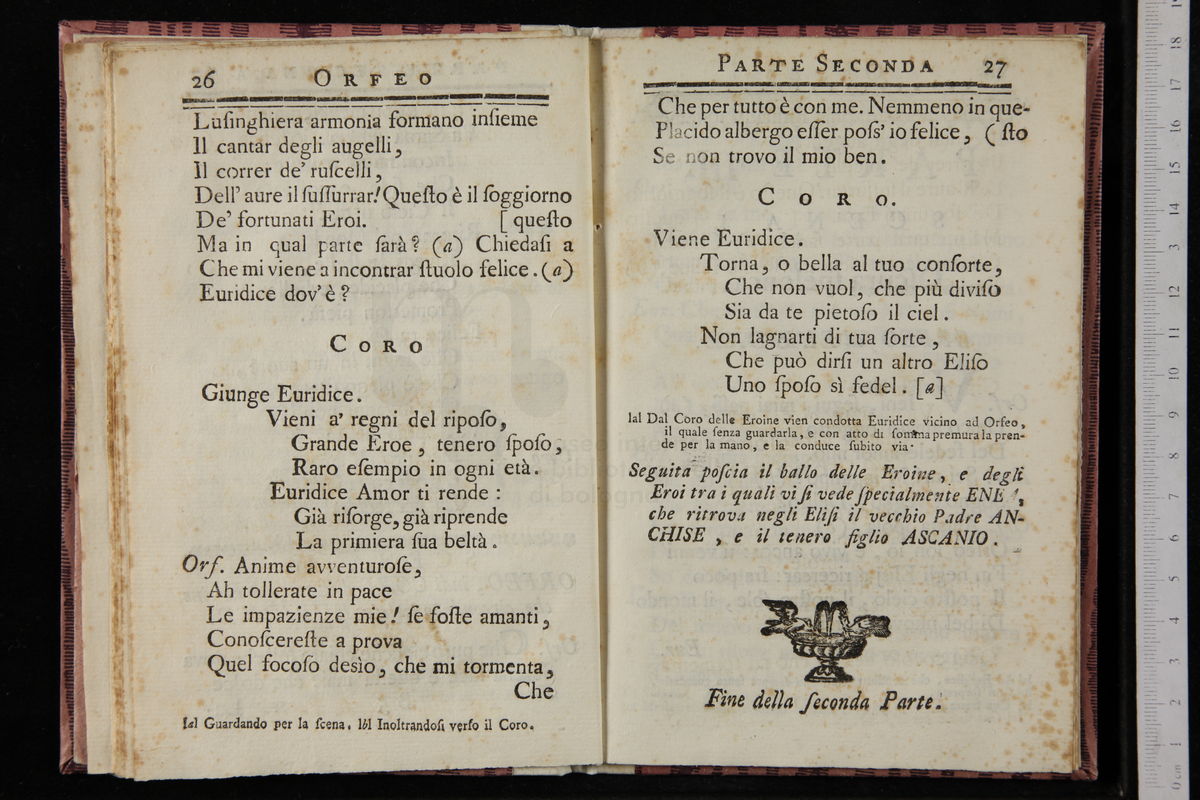 26 ORFEO
Luſinghiera armonia formano inſieme
Il cantar degli augelli,
Il correr de' ruſcelli,
Dell' aure il ſuſſurrar! Queſto è il ſoggiorno
De' fortunati Eroi. [ queſto
Ma in qual parte ſarà? (a) Chiedaſi a
Che mi viene a incontrar ſtuolo felice. (a)
Euridice dov' è?
CORO
Giunge Euridice.
Vieni a' regni del ripoſo,
Grande Eroe, tenero ſpoſo,
Raro eſempio in ogni età.
Euridice Amor ti rende:
Già riſorge, già riprende
La primiera ſua beltà.
Orf. Anime avventuroſe,
Ah tollerate in pace
Le impazienze mie! ſe foſte amanti,
Conoſcereſte a prova
Quel focoſo desìo, che mi tormenta,
Che
[a] Guardando per la ſcena. [b] Inoltrandoſi verſo il Coro.
PARTE SECONDA 27
Che per tutto è con me. Nemmeno in que-
Placido albergo eſſer poſs' io felice, ( ſto
Se non trovo il mio ben.
CORO.
Viene Euridice.
Torna, o bella al tuo conſorte,
Che non vuol, che più diviſo
Sia da te pietoſo il ciel.
Non lagnarti di tua ſorte,
Che può dirſi un altro Eliſo
Uno ſpoſo sì fedel. [a]
[a] Dal Coro delle Eroine vien condotta Euridice vicino ad Orfeo,
il quale ſenza guardarla, e con atto di ſomma premura la pren-
de per la mano, e la conduce ſubito via.
Seguita poſcia il ballo delle Eroine, e degli
Eroi tra i quali vi ſi vede ſpecialmente ENEA,
che ritrova negli Eliſi il vecchio Padre AN-
CHISE, e il tenero figlio ASCANIO.
Fine della ſeconda Parte.